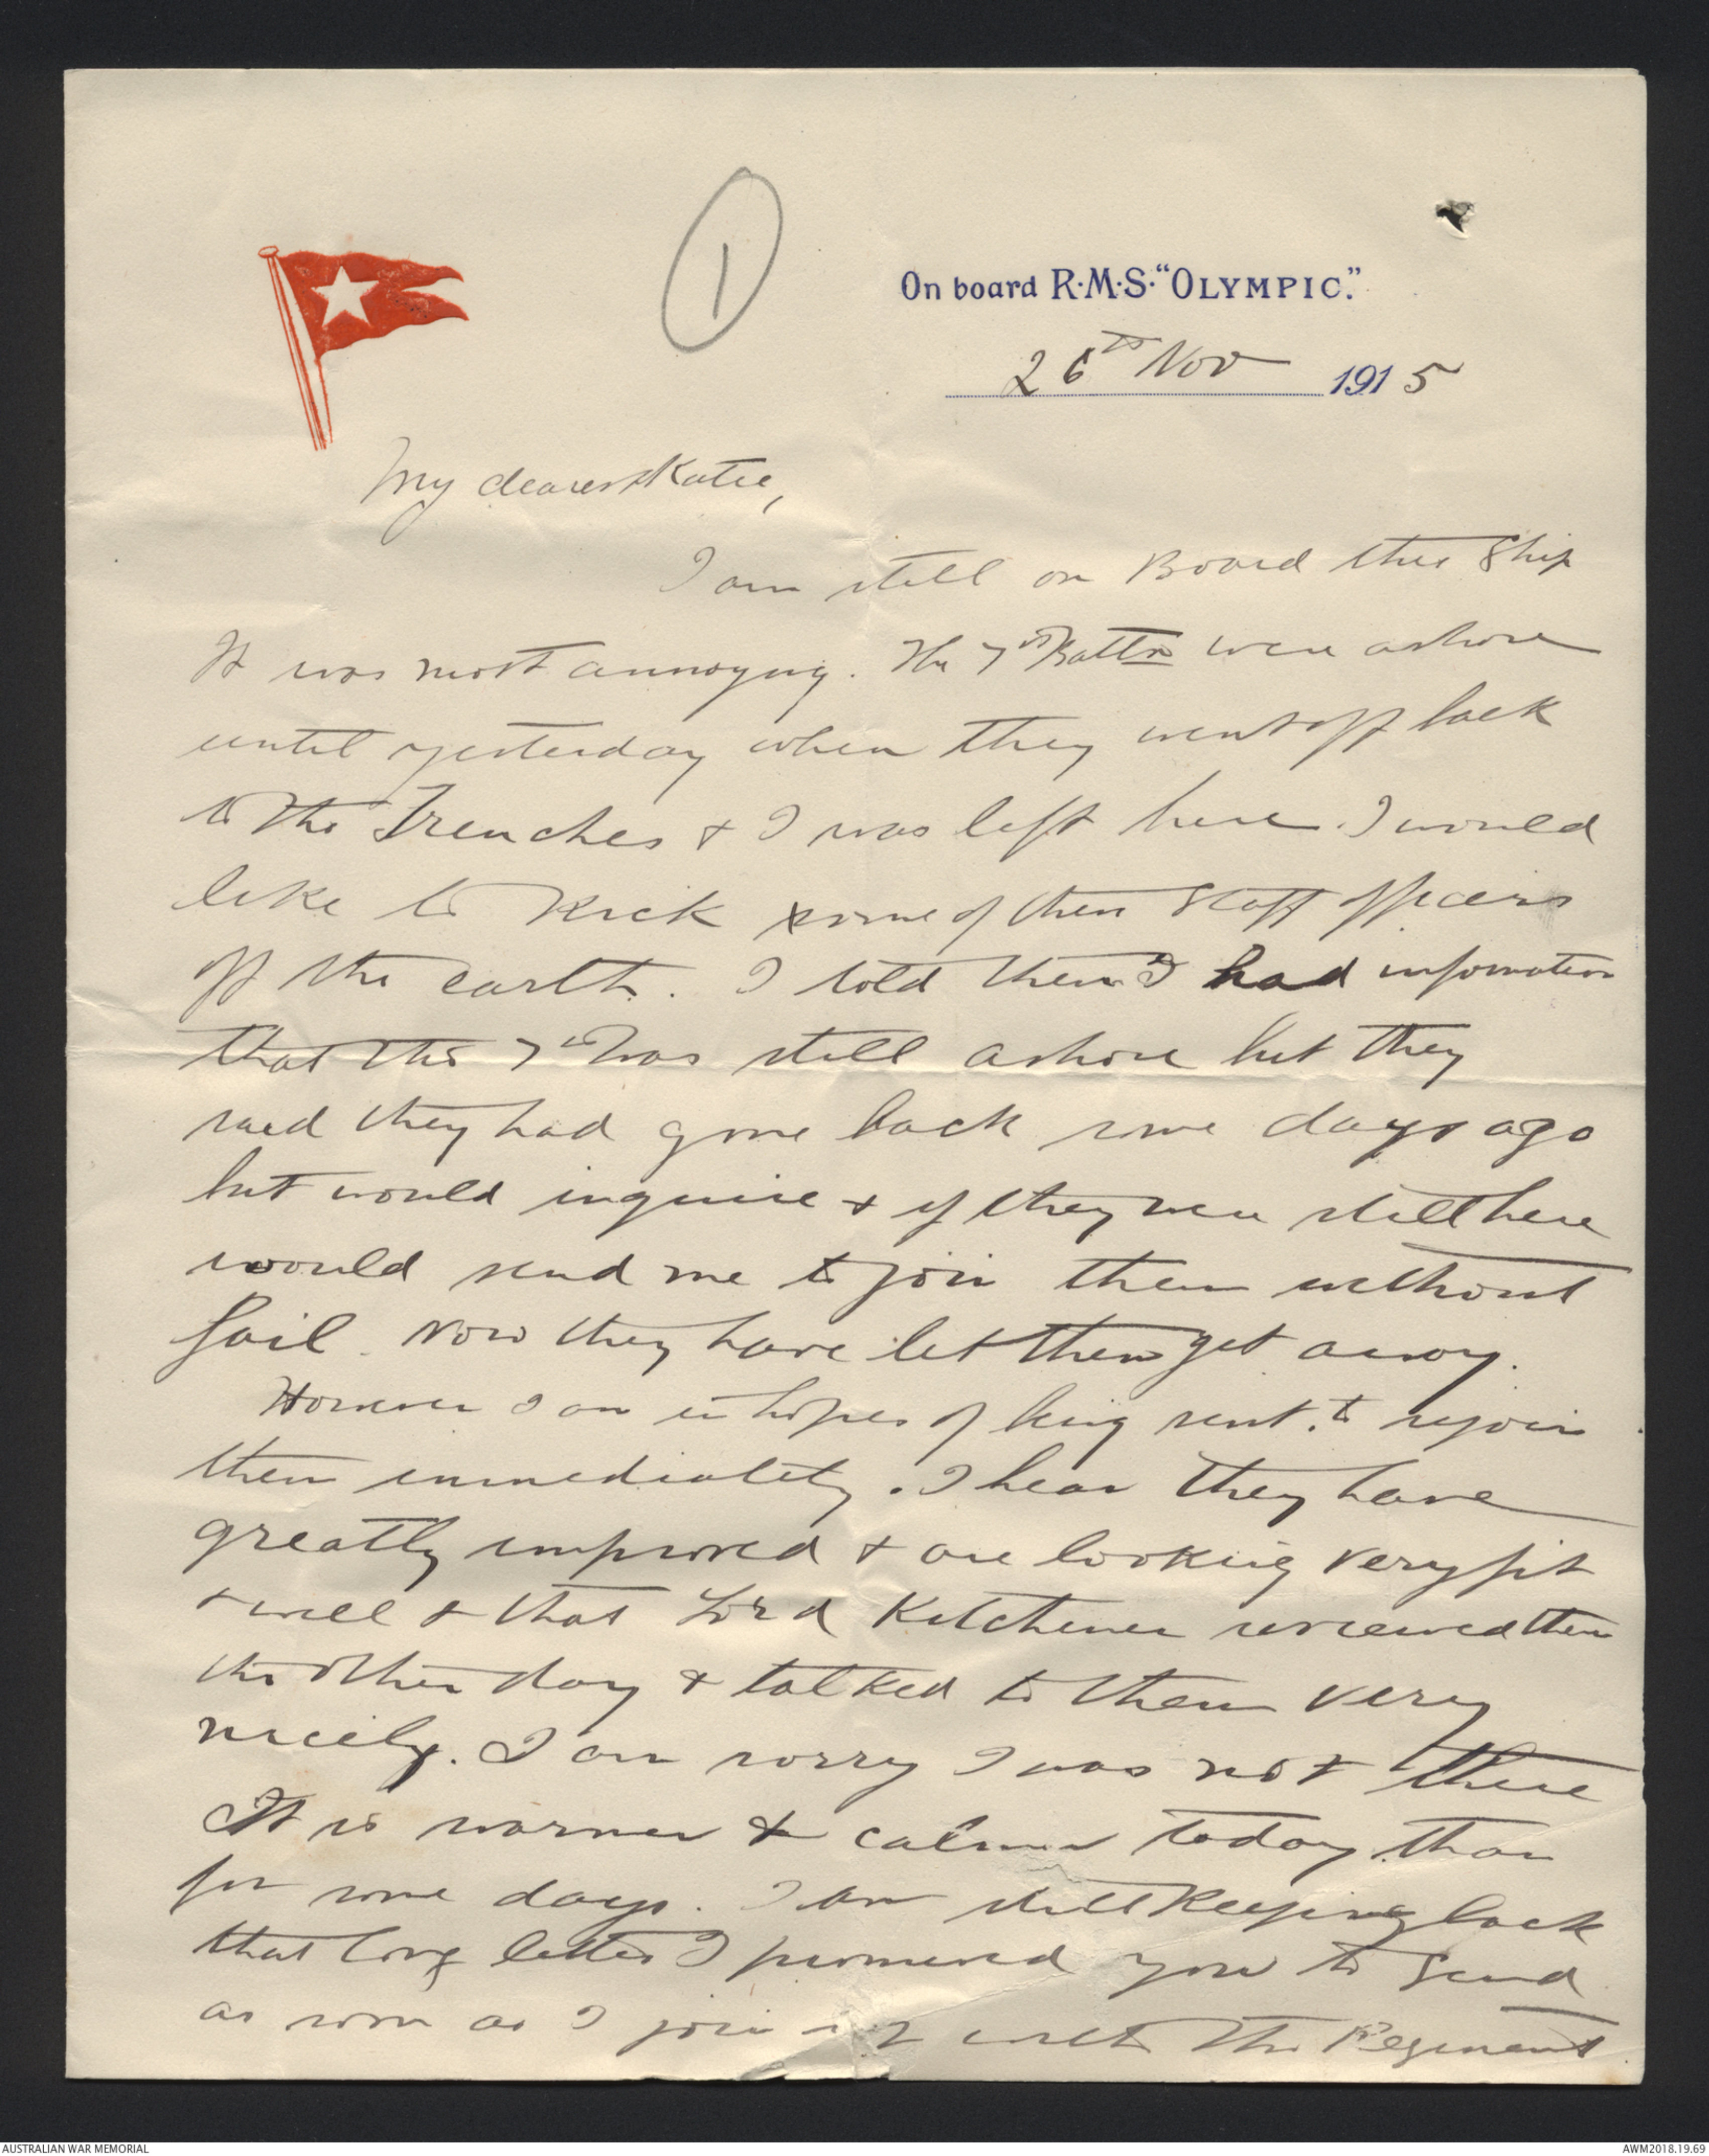 1
On board R·M·S· "OLYMPIC."
26th Nov 1915
My dearest Katie,
I am still on Board this Ship
It was most annoying. The 7th Battn were ashore
until yesterday when they went off back
to the Trenches & I was left here. I would
like to kick some of these Staff officers
off the earth. I told them I had information
that the 7th was still ashore but they
said they had gone back some days ago
but would inquire & if they were still here
would send me to join them without
fail. Now they have let them get away.
However I am in hopes of being sent to rejoin
them immediately. I hear they have
greatly improved & are looking very fit
& well & that Lord Kitchener reviewed them
the other day & talked to them very
nicely. I am sorry I was not there
It is warmer & calmer today than
for some days. I am still keeping back
that long letter I promised you to send
as soon as I join up with the Regiment
AUSTRALIAN WAR MEMORIAL
AWM2018.19.69